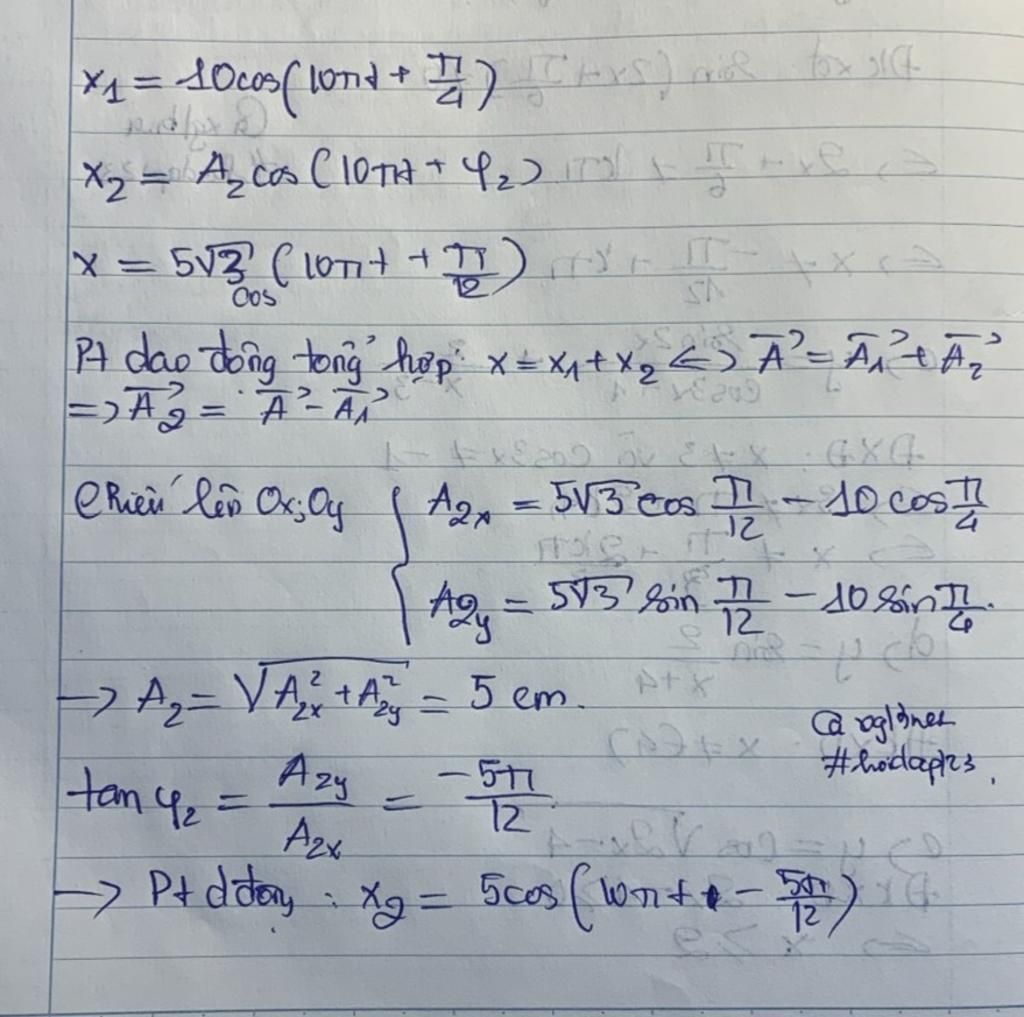 x₁ = 10cos(10πt + π/4)
x₂ = A₂cos(10πt + φ₂)
x = 5√3 cos (10πt + π/12)
Pt dao động tổng hợp: x = x₁ + x₂ <=> A⃗ = A⃗₁ + A⃗₂
=> A⃗₂ = A⃗ - A⃗₁
Chiếu lên Ox; Oy { A₂ₓ = 5√3 cos π/12 - 10 cos π/4
A₂y = 5√3 sin π/12 - 10 sin π/4.
-> A₂ = √(A₂ₓ² + A₂y²) = 5 cm.
tan φ₂ = A₂y/A₂ₓ = -5π/12
-> Pt d động : x₂ = 5cos(10πt - 5π/12)